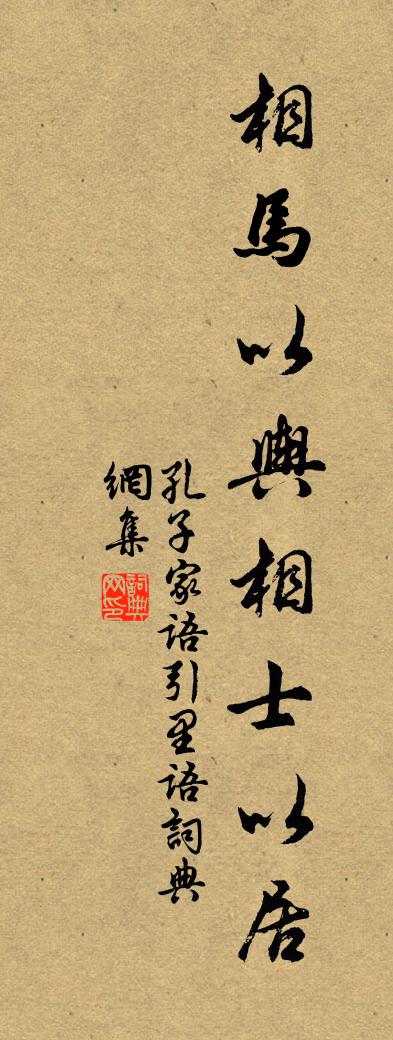 相馬以輿相士以居
孔子家語引里語詞典
網集
詞典
網印